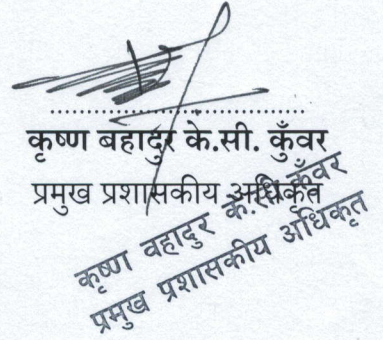 कृष्ण बहादुर के.सी. कुँवर
प्रमुख प्रशासकीय अधिकृत
कृष्ण वहादुर के.सि. कुँवर
प्रमुख प्रशासकीय अधिकृत